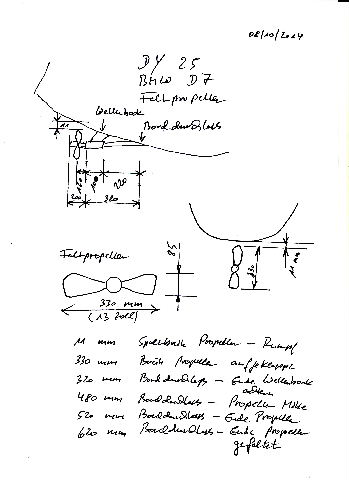 08/10/2024
DY 25
BMW D7
Faltpropeller
Wellenbock
Borddurchlass
11
120
100
220
200
320
Faltpropeller
85
330 mm
(13 Zoll)
330
11 mm
11 mm Spaltbreite Propeller - Rumpf
330 mm Breite Propeller aufgeklappt
320 mm Borddurchlass - Ende Wellenbock
achtern
480 mm Borddurchlass - Propeller Mitte
520 mm Borddurchlass - Ende Propeller
620 mm Borddurchlass - Ende Propeller
gefaltet